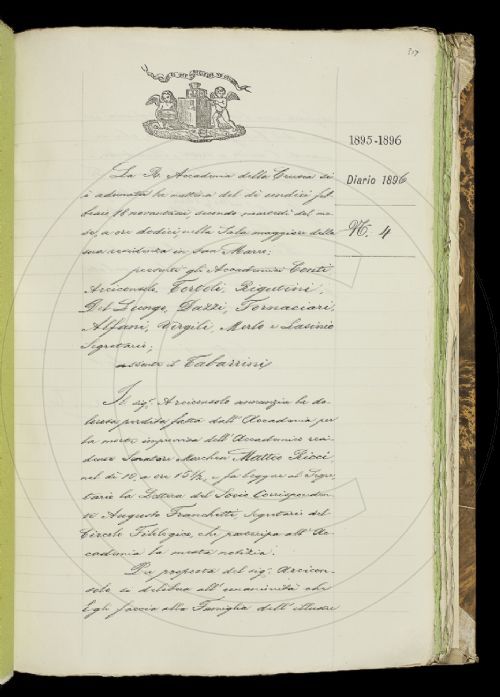 317
1895-1896
Diario 1896
N. 4
La R. Accademia della Crusca si
è adunata la mattina del dì undici feb
braio 96 novantasei, secondo martedì del me
se, a ore dodici, nella Sala maggiore della
sua residenza in San Marco;
presenti gli Accademici Conti
Arciconsolo, Tortoli, Rigutini,
Del Lungo, Dazzi, Fornaciari,
Alfani, Virgili, Merlo e Lasinio
Segretario;
assente il Tabarrini
Il sig.r Arciconsolo annunzia la do
lorosa perdita fatta dall'Accademia per
la morte improvvisa dell'Accademico resi
dente Senatore Marchese Matteo Ricci
nel dì 10, a ore 15½, e fa leggere al Segre
tario la Lettera del Socio Corrisponden
te Augusto Franchetti, Segretario del
Circolo Filologico, che partecipa all'Ac
cademia la mesta notizia.
Su proposta del sig.r Arcicon
solo si delibera all'unanimità che
Egli faccia alla Famiglia dell'illustre